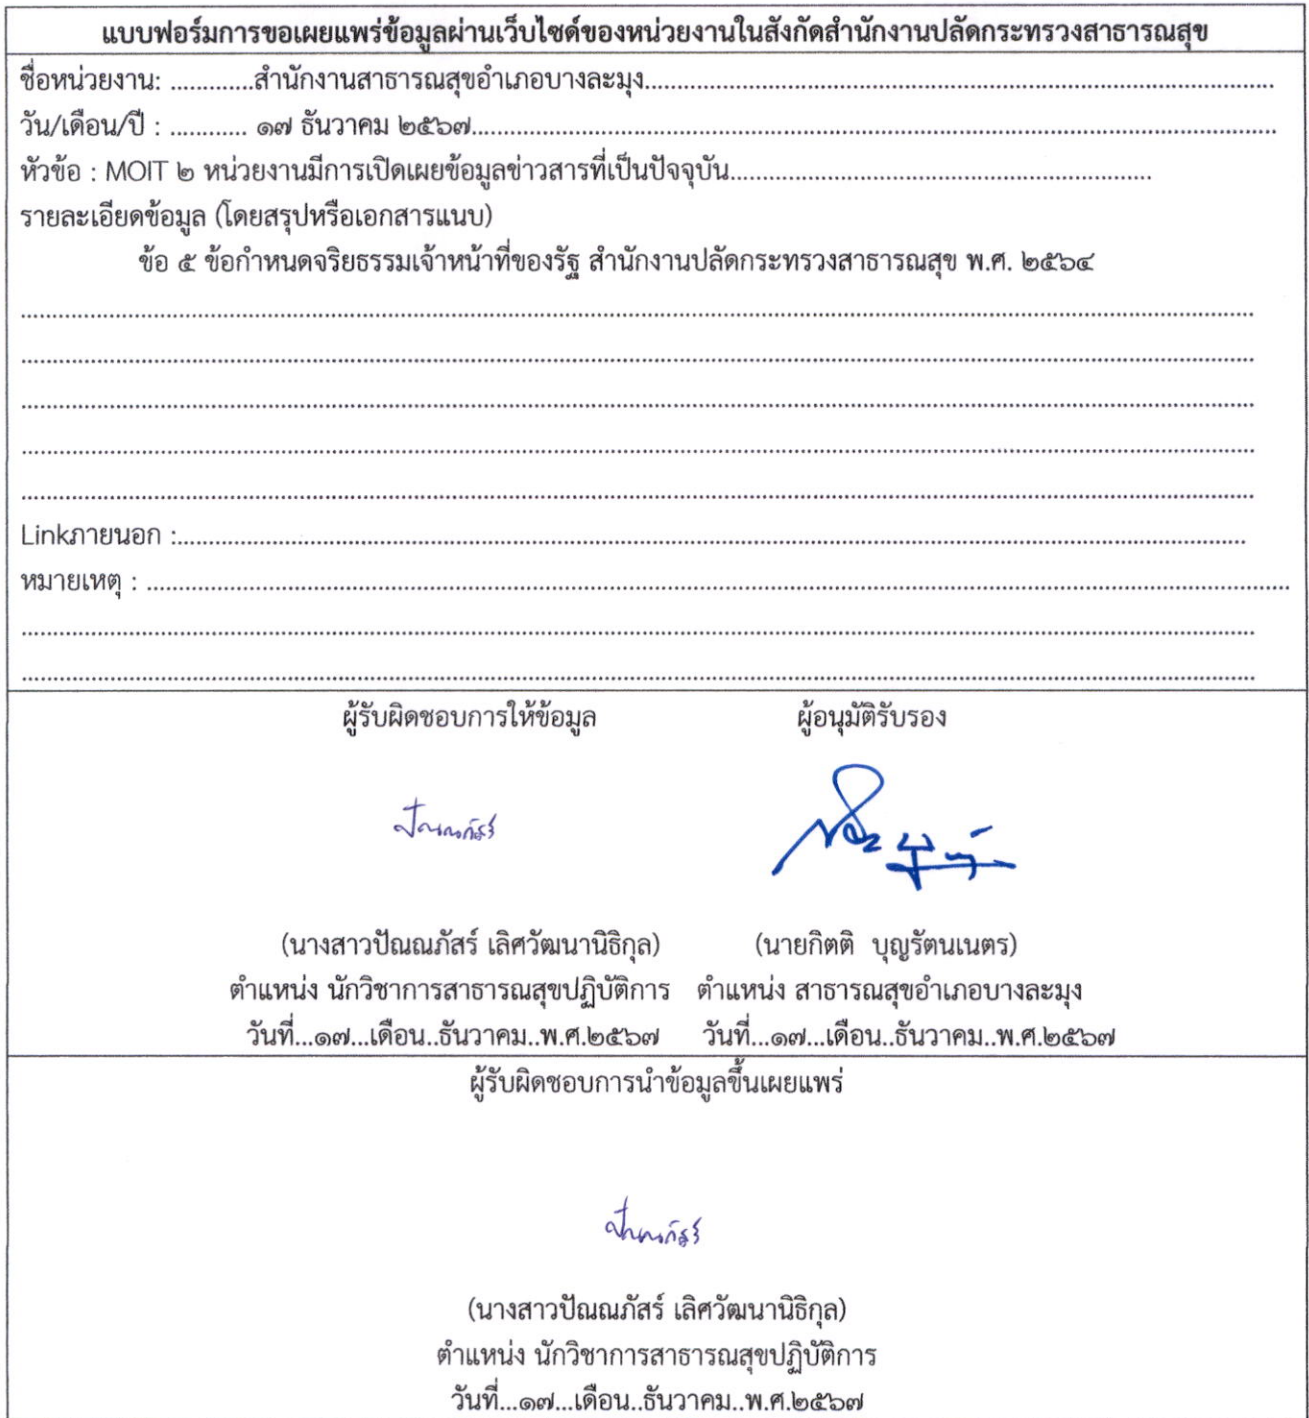 แบบฟอร์มการขอเผยแพร่ข้อมูลผ่านเว็บไซต์ของหน่วยงานในสังกัดสำนักงานปลัดกระทรวงสาธารณสุข
ชื่อหน่วยงาน: .............สำนักงานสาธารณสุขอำเภอบางละมุง.................................................................................................
วัน/เดือน/ปี : ............ ๑๗ ธันวาคม ๒๕๖๗............................................................................................................................
หัวข้อ : MOIT ๒ หน่วยงานมีการเปิดเผยข้อมูลข่าวสารที่เป็นปัจจุบัน.................................................................
รายละเอียดข้อมูล (โดยสรุปหรือเอกสารแนบ)
ข้อ ๕ ข้อกำหนดจริยธรรมเจ้าหน้าที่ของรัฐ สำนักงานปลัดกระทรวงสาธารณสุข พ.ศ. ๒๕๖๔
Linkภายนอก :.....................................................................................................................................................................
หมายเหตุ : ................................................................................................................................................................................
ผู้รับผิดชอบการให้ข้อมูล ผู้อนุมัติรับรอง
ปัณณภัสร์
(นางสาวปัณณภัสร์ เลิศวัฒนานิธิกุล) (นายกิตติ บุญรัตนเนตร)
ตำแหน่ง นักวิชาการสาธารณสุขปฏิบัติการ ตำแหน่ง สาธารณสุขอำเภอบางละมุง
วันที่...๑๗...เดือน..ธันวาคม..พ.ศ.๒๕๖๗ วันที่...๑๗...เดือน..ธันวาคม..พ.ศ.๒๕๖๗
ผู้รับผิดชอบการนำข้อมูลขึ้นเผยแพร่
ปัณณภัสร์
(นางสาวปัณณภัสร์ เลิศวัฒนานิธิกุล)
ตำแหน่ง นักวิชาการสาธารณสุขปฏิบัติการ
วันที่...๑๗...เดือน..ธันวาคม..พ.ศ.๒๕๖๗